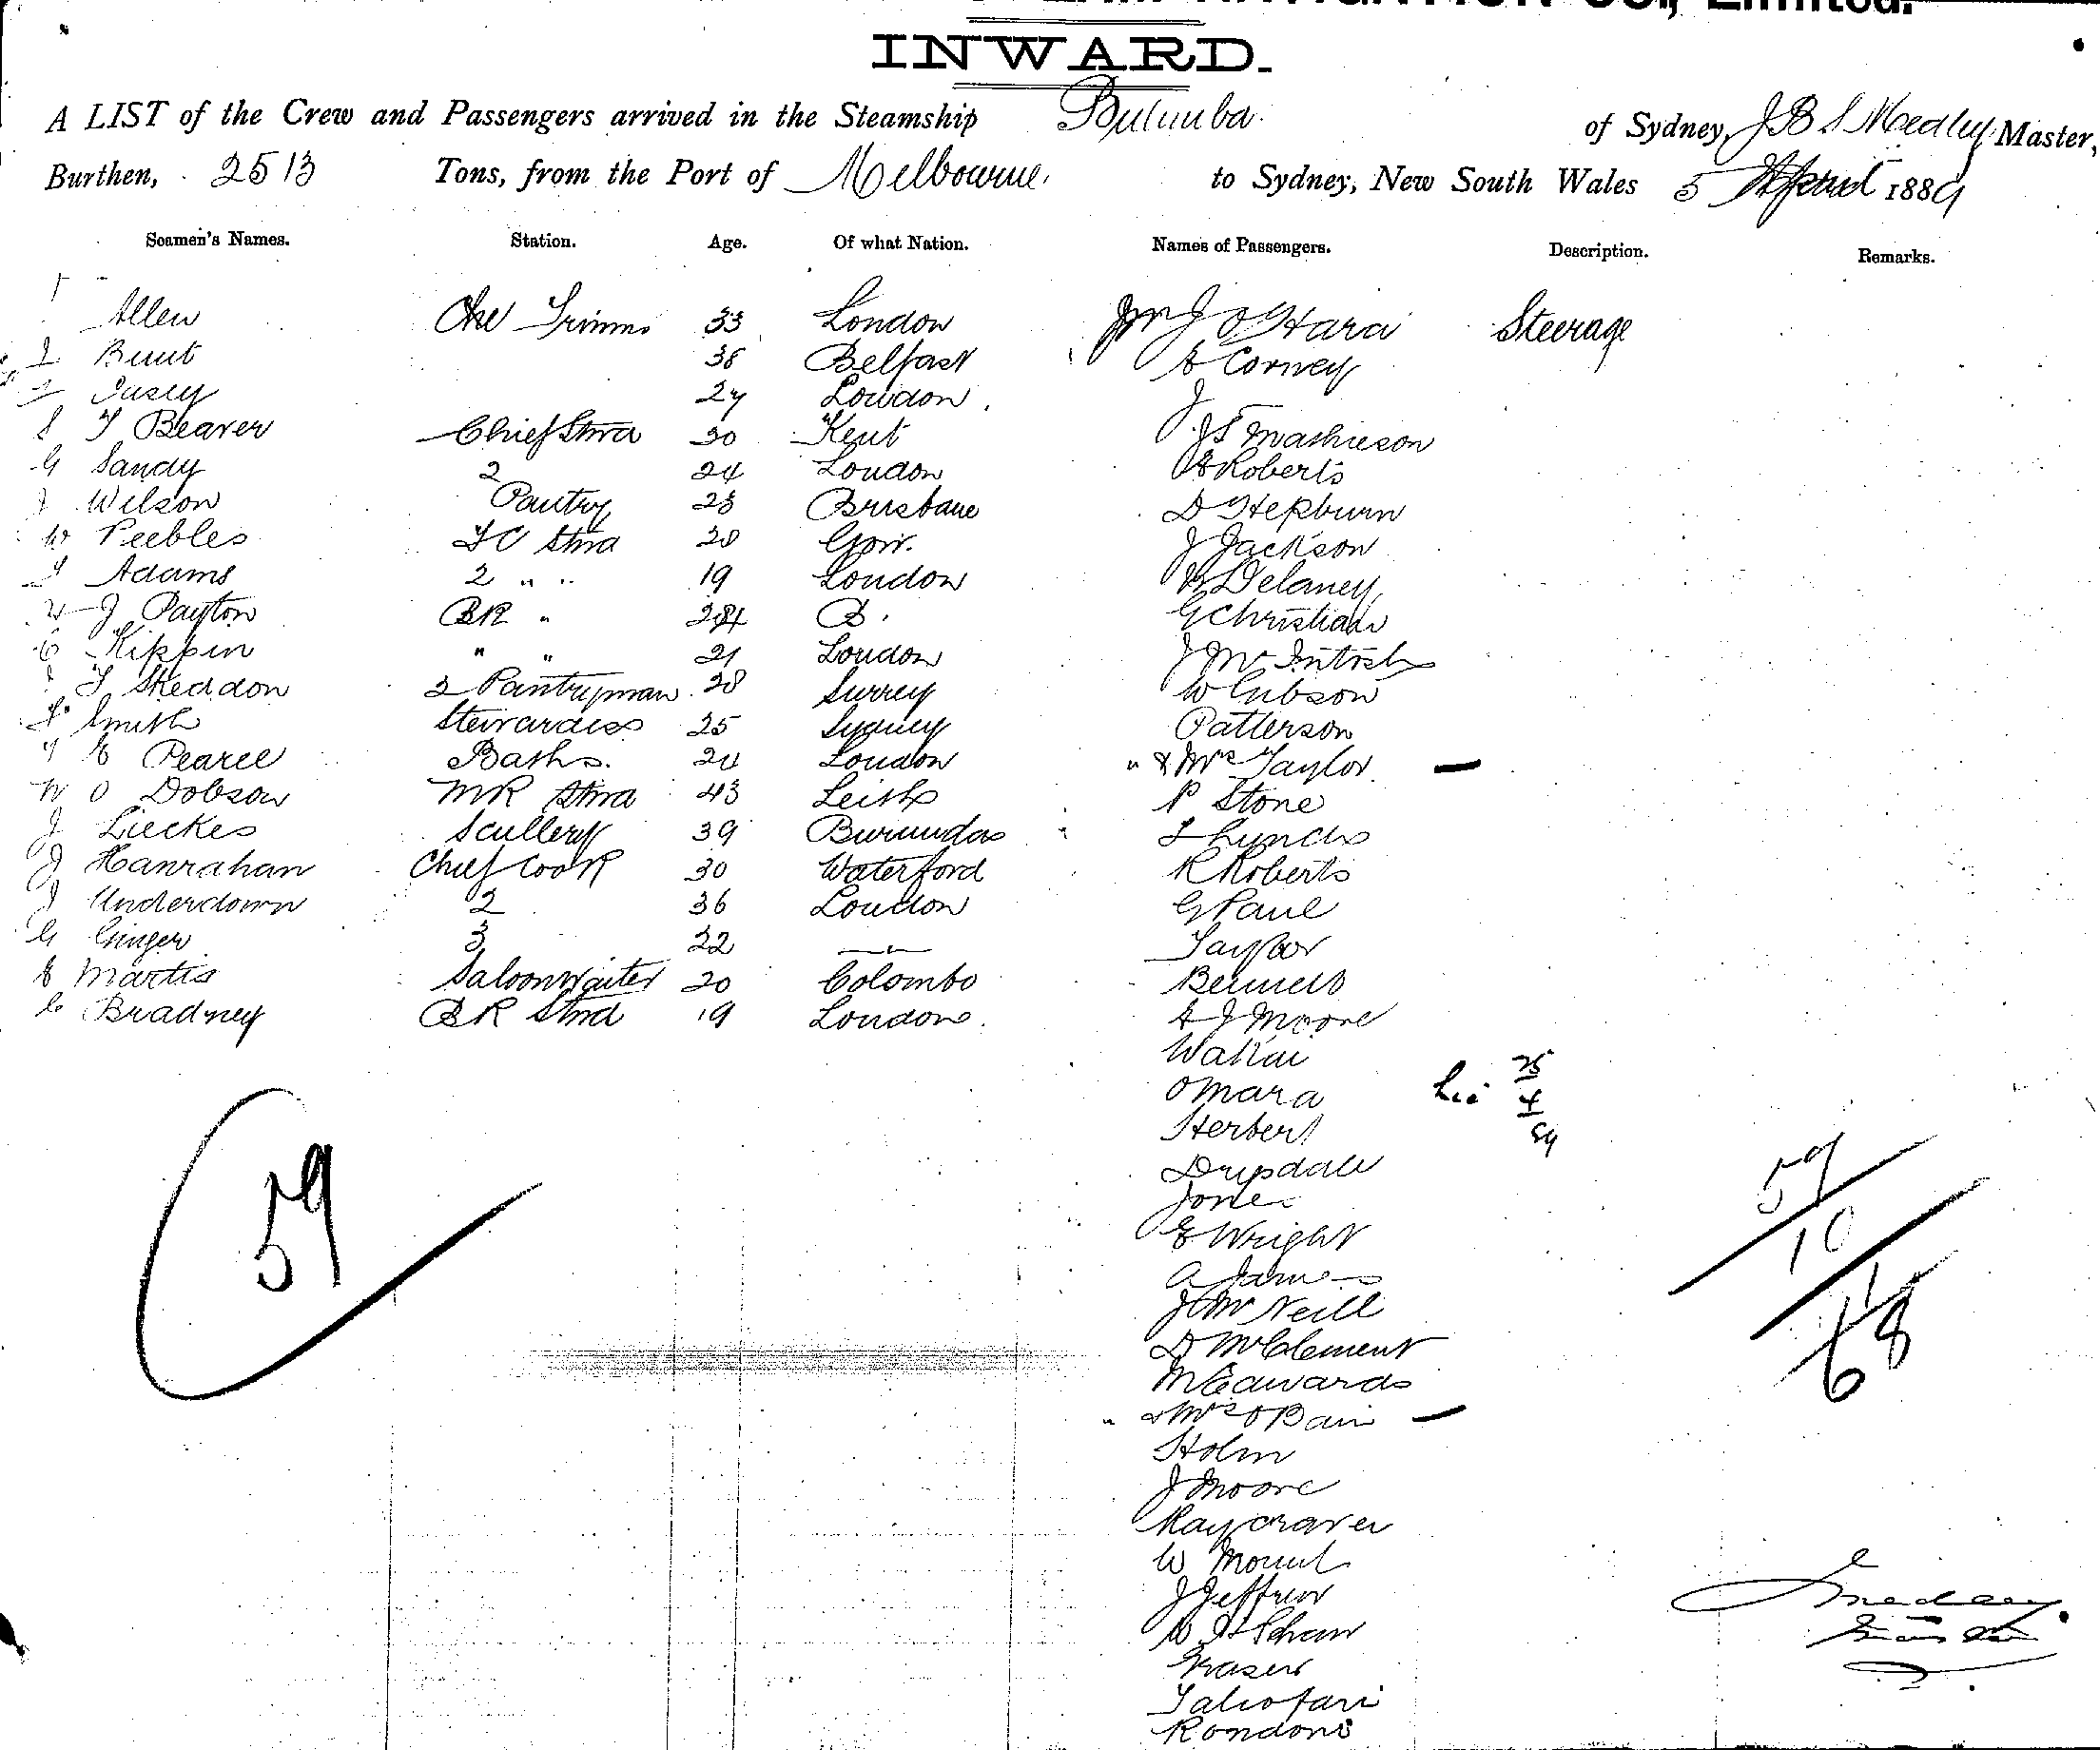 INWARD.
A LIST of the Crew and Passengers arrived in the Steamship Bulimba of Sydney, J B S Medley Master,
Burthen, 2513 Tons, from the Port of Melbourne to Sydney, New South Wales 5 April 1889
Seamen's Names. Station. Age. Of what Nation. Names of Passengers. Description. Remarks.
Allen 33 London O'Hara Steerage
Bunt 38 Belfast Corney
Casey 27 London J
T Beaver Chief Stwd 30 Kent J S Mathieson
G Sandy 2 24 London Roberts
J Wilson Pantry 23 Brisbane D Hepburn
W Peebles Stwd 20 J Jackson
Adams 2 " " 19 London Delaney
J Payton BR " B. G Christian
C Kippin " " 21 London J McIntosh
T Skeddon 2 Pantryman 28 Surrey W Gibson
Smith Stewardess 25 Sydney Patterson
E Pearce Baths. London " & Mrs Taylor —
W O Dobson MR Stwd 43 Leith P Stone
J Lieckes Scullery 39 Lynch
J Hanrahan Chief Cook 30 Waterford R Roberts
J Underdown 2 36 London G Paul
G Ginger 3 22 —"— Taylor
E Martis Saloon Waiter 20 Colombo Bennett
C Bradney BR Stwd 19 London A J Moore
Wakai
Omara
Herbert
Drysdale
Jones
E Wright
A James
J McNeill
D McClement
M Edwards
" & Mrs O'Bain —
Holm
J Moore
Raycraven
W Mount
J Jeffries
W H Schaw
Fraser
Taliofari
Rondoni
25
4
89
59
59
10
68